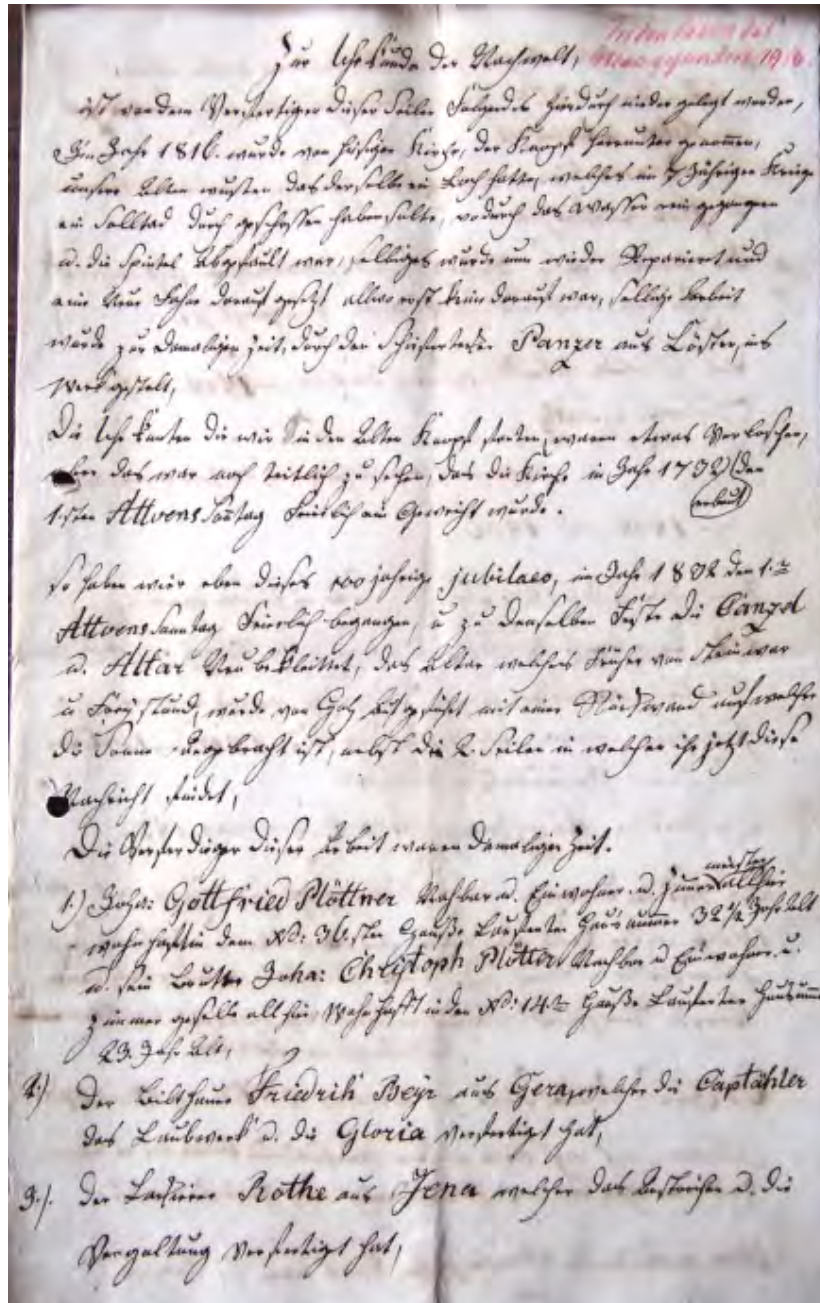 Zur Uhrkunde der Nachwelt,
ist von dem Verfertiger dieser Seilen Folgendes hirdurch nieder gelegt worden,
Im Jahr 1816. wurde von hisiger Kirche, der Knopf herrunter genommen,
unsere Alten wusten das derselbe ein Loch hatte, welches im 7 Jährigen Kriege
ein Solltad durch geschossen haben solte, wodurch das Wasser nein gegangen
u. die Spintel abgefault war, selbiges wurde nun wieder Reparieret und
eine Neue Fahne darauf gesetzt allwo erst kein darauf war, sellige Arbeit
wurde zur damaligen Zeit, durch den Schieferdecker Panzer aus Löster, ins
Werk gestelt,
Die Uhrkunten die wir in den Alten Knopf fanden, waren etwas Verloschen,
aber das war noch teitlich zu sehen, das die Kirche in Jahr 1732 (den
erbaut
1.sten Attvens Sontag Feierlich ein Geweiht wurde.
so haben wier eben dieses 100 jahrige jubilaeo, im Jahr 1832 den 1.
Attvens Sonntag Feierlich begangen, u zu denselben Feste die Canzel
u. Altar Neu bekleittet, das Altar welches Früher von Stein war
u. Frey stund, wurde von Holz aus geführt mit einer Rückwand auf welcher
die Sonne angebracht ist, nebst die 2. Seilen in welcher ihr jetzt diese
Nachricht findet,
Die Verferdiger dieser Arbeit waren damaliger Zeit.
meister
1.) Joha: Gottfried Plöttner Nachbar u. Einwohner. u. Zimmer allhir
wohn haft in dem No: 36.sten Hauße 32 1/2 Jahr Alt
u. sein Brutter Joha: Christoph Plötter, Nachbar u Einwohner. u.
Zimmer geselle all hir, Wohn hafft in den No: 14. Hauße
23. Jahr Alt,
2.) Der Bilthauer Friedrih Beyr aus Gera, welcher die Captähler
das Laubwerk u. die Gloria verfertigt hat,
3.). Der Lackierer Rothe aus Jena welcher das Bestreichen u. die
Vergoltung verfertigt hat,